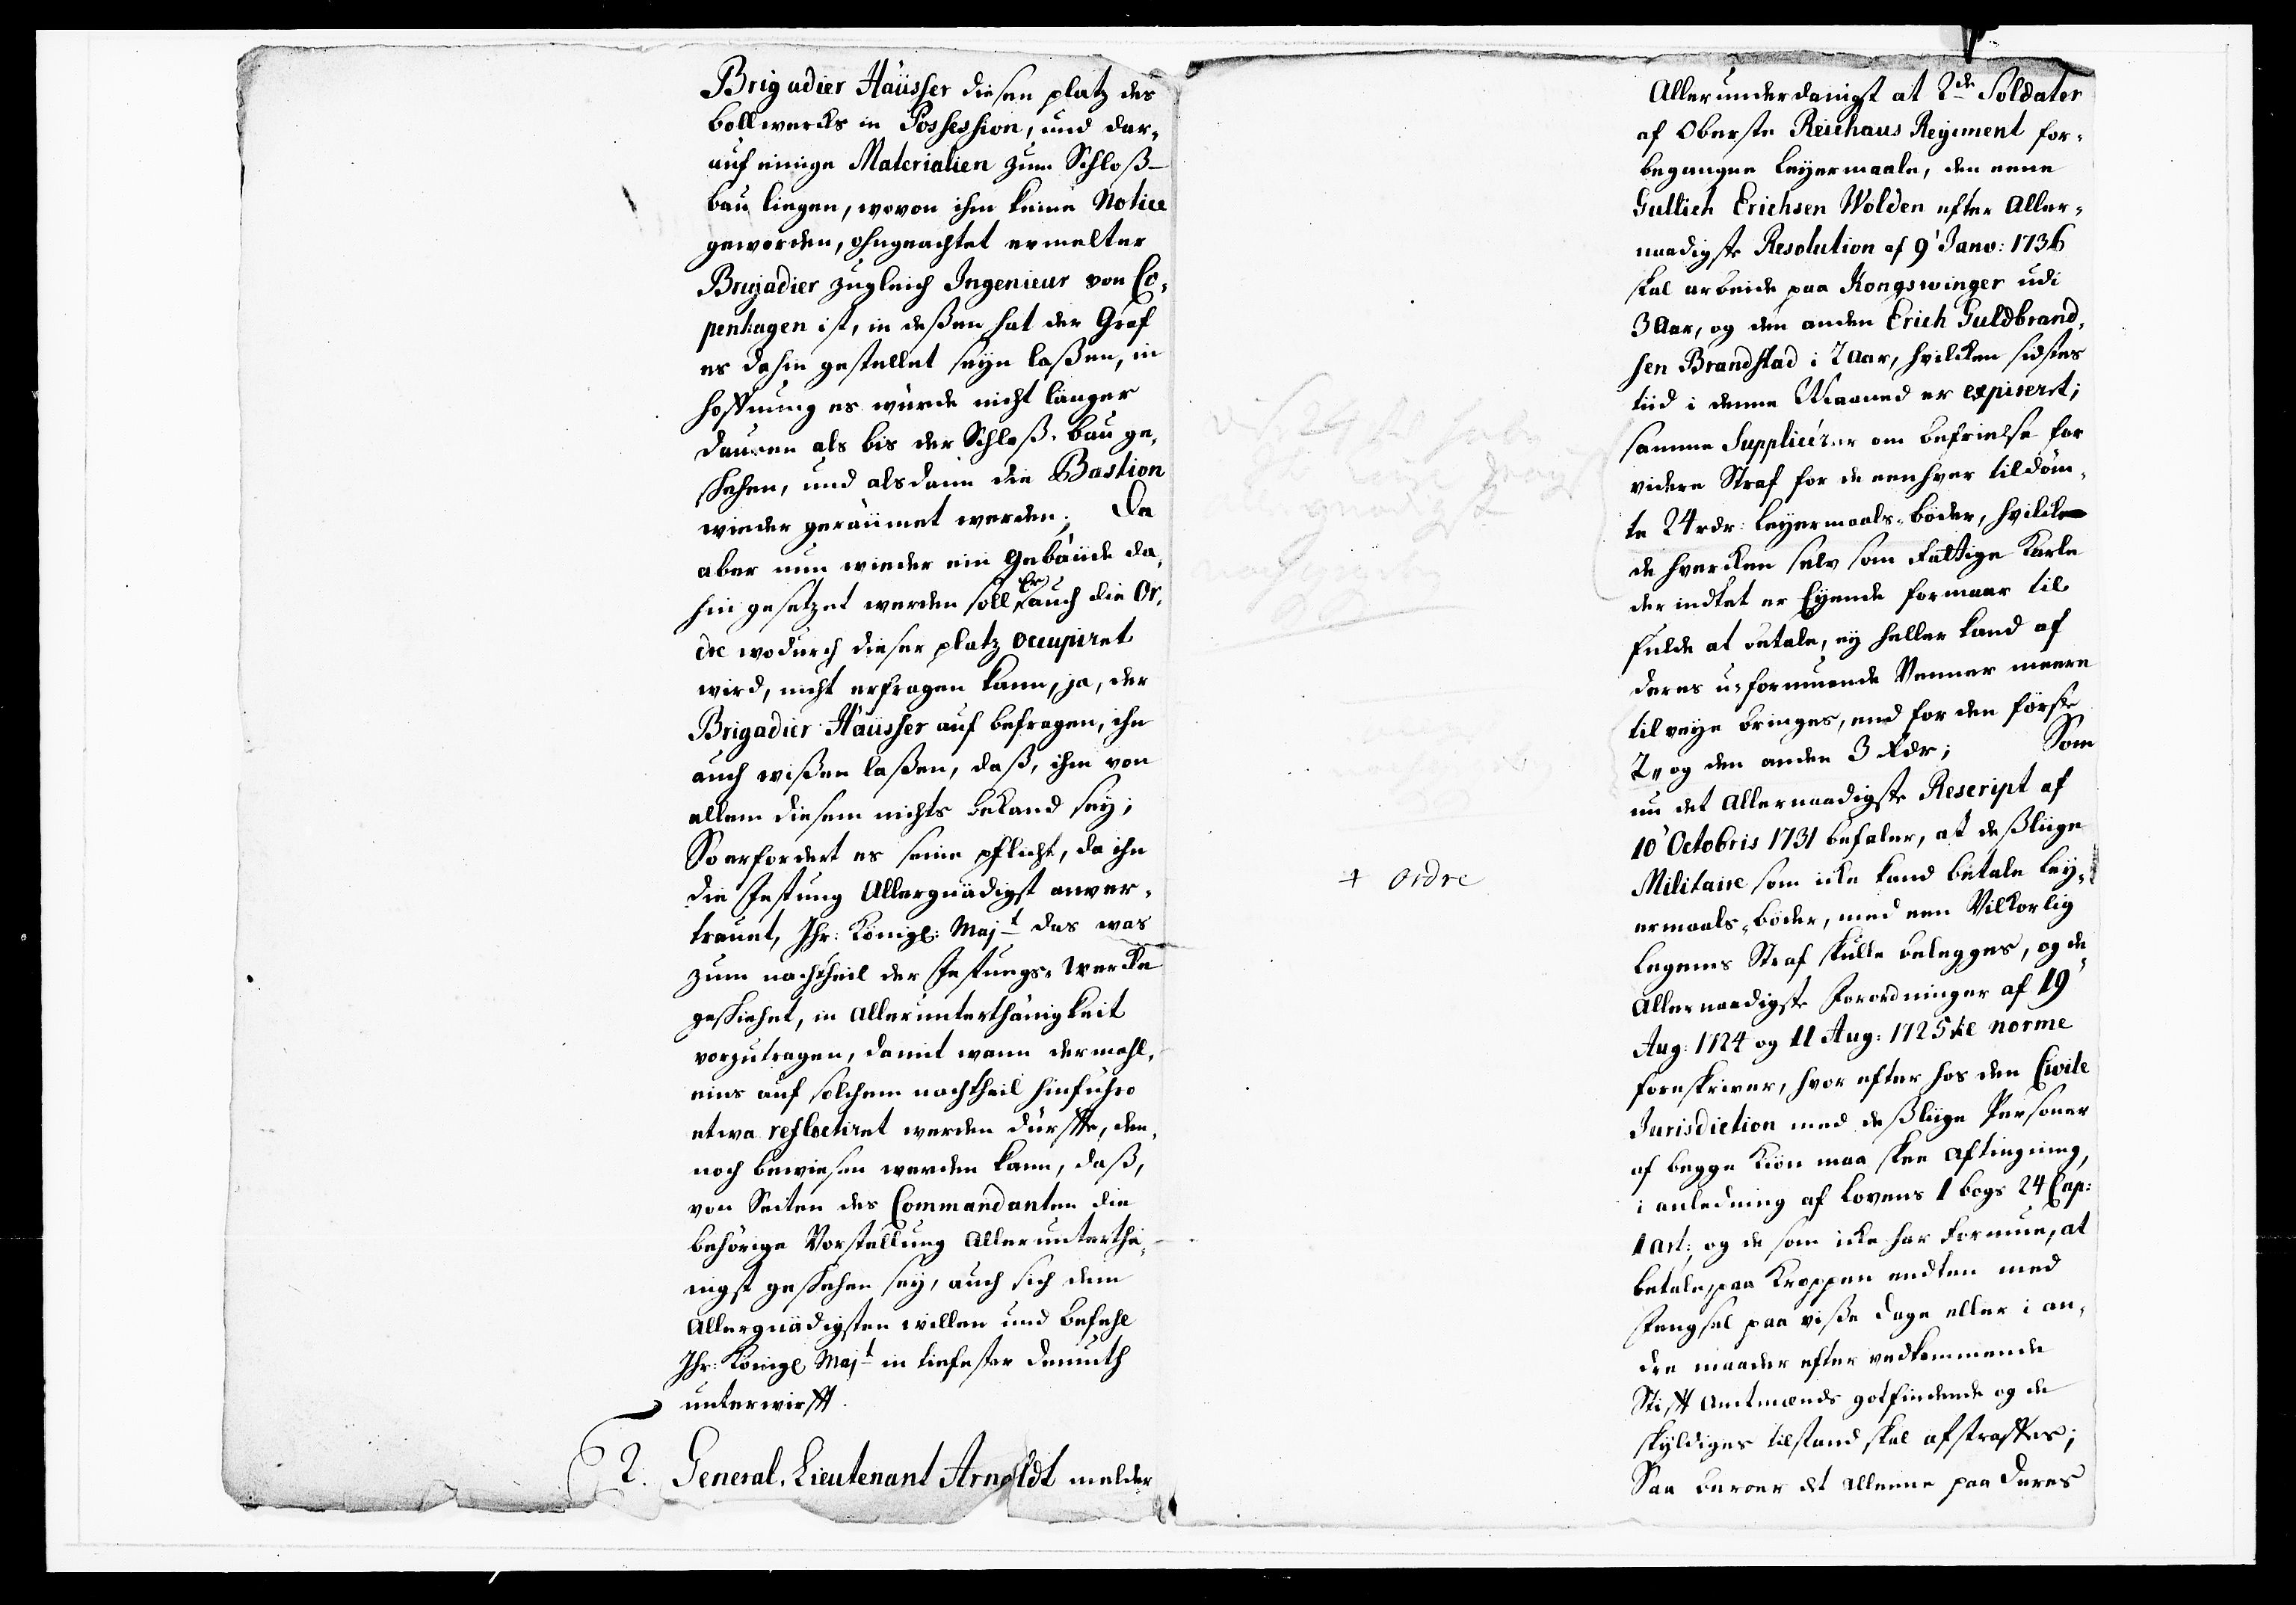 Brigadier Häüsser diesen platz des
bollwercks in Possession, und dar¬
auf einige Materialien zum Schloß-
bau liegen, wovon ihm keine Notice
geworden, ohngeachtet ermelter
Brigadier zugleich Ingenieur von Co¬
penhagen ist, in deßen hat der Graf
es dahin gestellet seyn laßen, in
hoffnung es würde nicht länger
dauren als bis der Schloß-bau ge¬
schehen, und alsdann die Bastion
wieder geräümet werden; Da
aber nun wieder ein Gebäüde da¬
hin gesetzet werden soll Er auch die Or¬
dre wodurch dieser platz occupiret
wird, nicht erfragen kann, ja, der
Brigadier Häüsser auf befragen, ihn
auch wißen laßen, daß, ihm von
allem diesem nichts bekand sey;
So erfordert es seine pflicht, da ihn
die Festung Allergnädigst anver¬
trauet, Ihr: Königl: Majt das was
zum nachtheil der Festungs-Wercke
geschiehet, in Allerunterthänigkeit
vorzutragen, damit wann dermahl¬
eins auf solchem nachtheil hinführo
etwa reflectiret werden dürffte, den¬
noch bewiesen werden kann, daß,
von Seiten des Commandanten die
behörige Vorstellung Allerunterthä¬
nigst geschehen sey, auch sich dem
Allergnädigsten willen und befehl
Ihr: Königl Majt in tiefester demuth
unterwirfft.
2. General-Lieutenant Arnoldt melder
+ ordre
Allerunderdanigst at 2de Soldater
af Oberste Reichaus Regiment for¬
begangne leyermaale, den eene
Gullich Erichsen Wolden efter Aller¬
naadigste Resolution af 9' Janv: 1736
skal arbeide paa Kongswinger udi
3 Aar, og den anden Erich Guldbrand¬
sen Brandstad i 2 Aar, hvilcken sidstes
tiid i denne Maaned er expireret;
samme Supplicérer om befrielse for
videre Straf for de eenhver tildöm¬
te 24 rdr: leyermaals-böder, hvilcke
de hvercken selv som fattige Karle
der indtet er Eyende formaar til
fulde at betale, ey heller kand af
deres u-formuende Venner meere
tilveye bringes, end for den förste
2 og den anden 3 Rdr; Som
nu det Allernaadigste Rescript af
10' Octobris 1731 befaler, at deßliige
Militaire som icke kand betale ley¬
ermaals-böder, med een Vilkorlig
Legems Straf skulle belegges, og de
Allernaadigste Forordninger af 19'
Aug: 1724 og 11 Aug: 1725 ke norme
foreskriver, hvor efter hos den Civile
Jurisdiction med deßliige Personer
af begge Kiön maa skee Aftingning,
i anledning af Lovens 1 bogs 24 Cap:
1 art:, og de som icke har formue, at
betale, paa Kroppen endten med
fengsel paa viße dage eller i an¬
dre maader efter vedkommende
Stifft Amtmænds gotfindende og de
skyldiges tilstand skal afstraffes;
Saa beroer det alleene paa deres